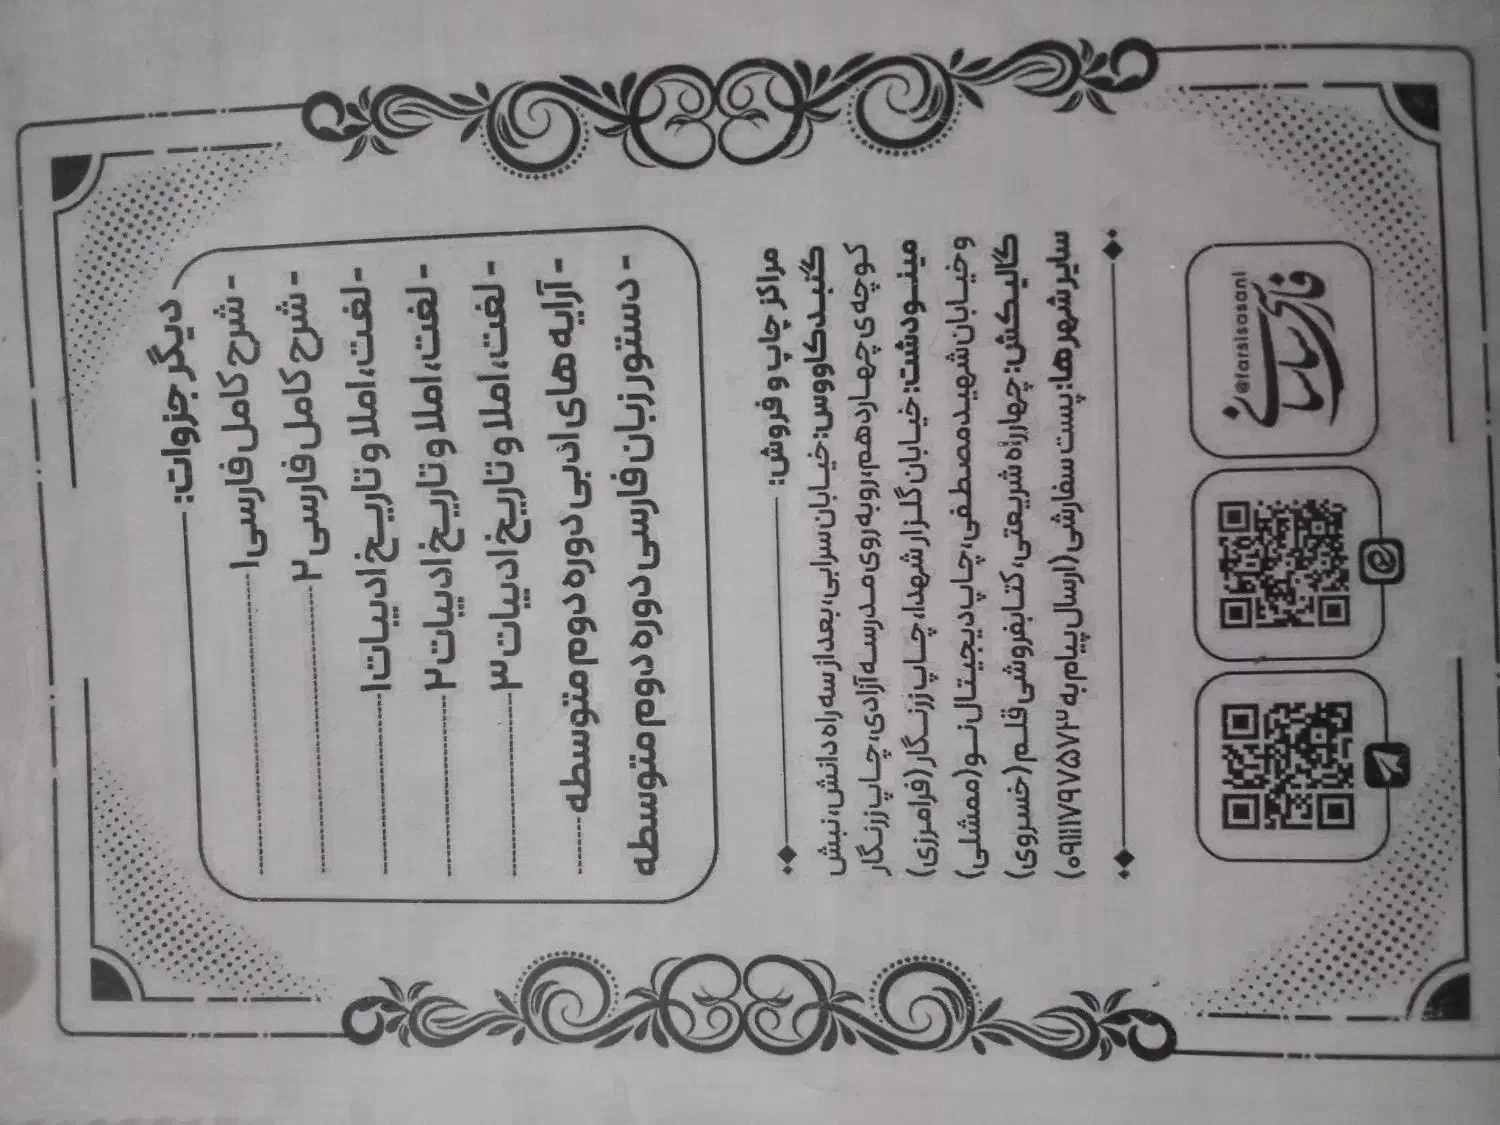 دیگر جزوات:
- شرح کامل فارسی ۱
- شرح کامل فارسی ۲
- لغت، املا و تاریخ ادبیات ۱
- لغت، املا و تاریخ ادبیات ۲
- لغت، املا و تاریخ ادبیات ۳
- آرایه های ادبی دوره دوم متوسطه
- دستور زبان فارسی دوره دوم متوسطه
مراکز چاپ و فروش:
گنبدکاووس: خیابان سرابی، بعد از سه راه دانش، نبش
کوچه‌ی چهاردهم، روبه روی مدرسه آزادی، چاپ زرنگار
مینودشت: خیابان گلزار شهدا، چاپ زرنگار (فرامرزی)
و خیابان شهید مصطفی، چاپ دیجیتال نو (ممشلی)
گالیکش: چهارراه شریعتی، کتابفروشی قلم (خسروی)
سایر شهرها: پست سفارشی (ارسال پیام به ۰۹۱۱۱۷۹۷۵۷۳)
@farsisasani
فارسی ساسانی